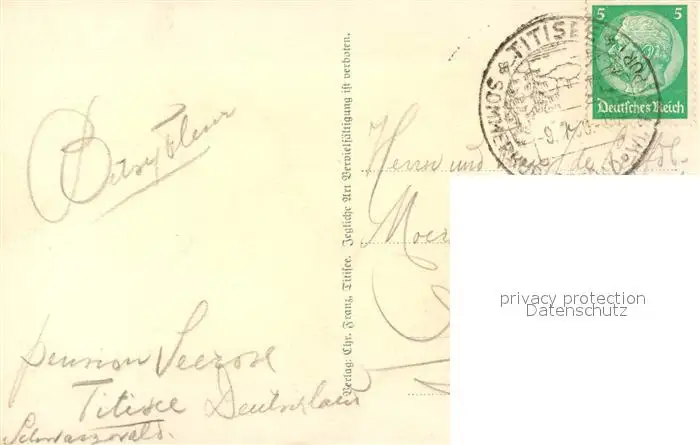 Betsy Fleur
pension Seerose
Titisee Deutschland
Schwarzwald.
Verlag: Chr. Franz, Titisee. Jegliche Art Vervielfältigung ist verboten.
TITISEE
SOMMER
5 5
Deutsches Reich
Herrn und
privacy protection
Datenschutz